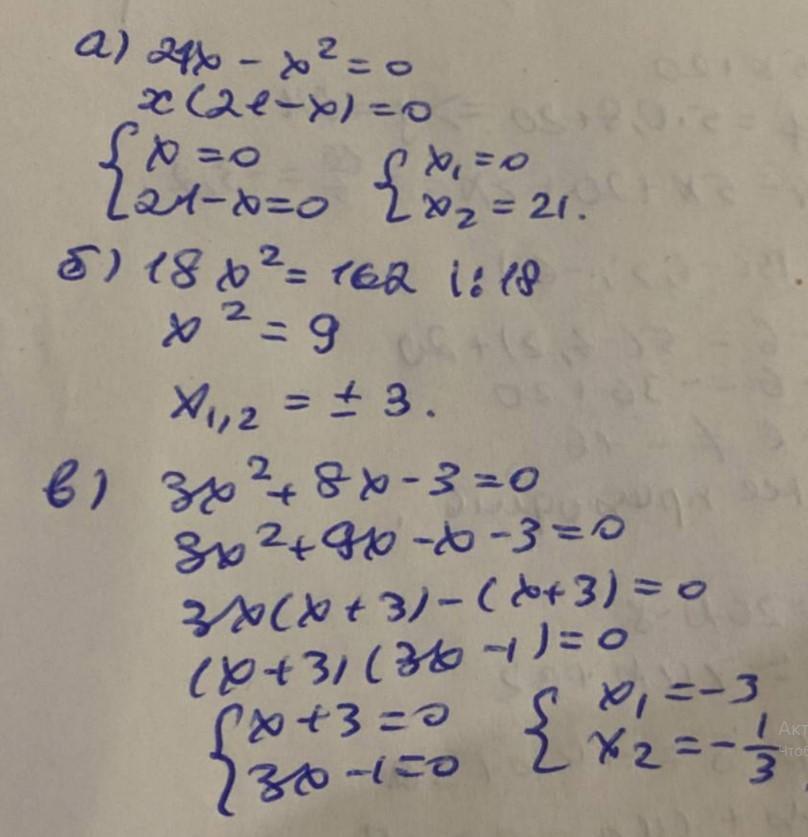 а) 21x - x² = 0
x(21-x) = 0
{ x = 0 { x₁ = 0
{ 21-x=0 { x₂ = 21.
б) 18x² = 162 |:18
x² = 9
x₁,₂ = ± 3.
в) 3x² + 8x - 3 = 0
3x² + 9x - x - 3 = 0
3x(x + 3) - (x+3) = 0
(x+3)(3x - 1) = 0
{ x + 3 = 0 { x₁ = -3
{ 3x - 1 = 0 { x₂ = - 1/3